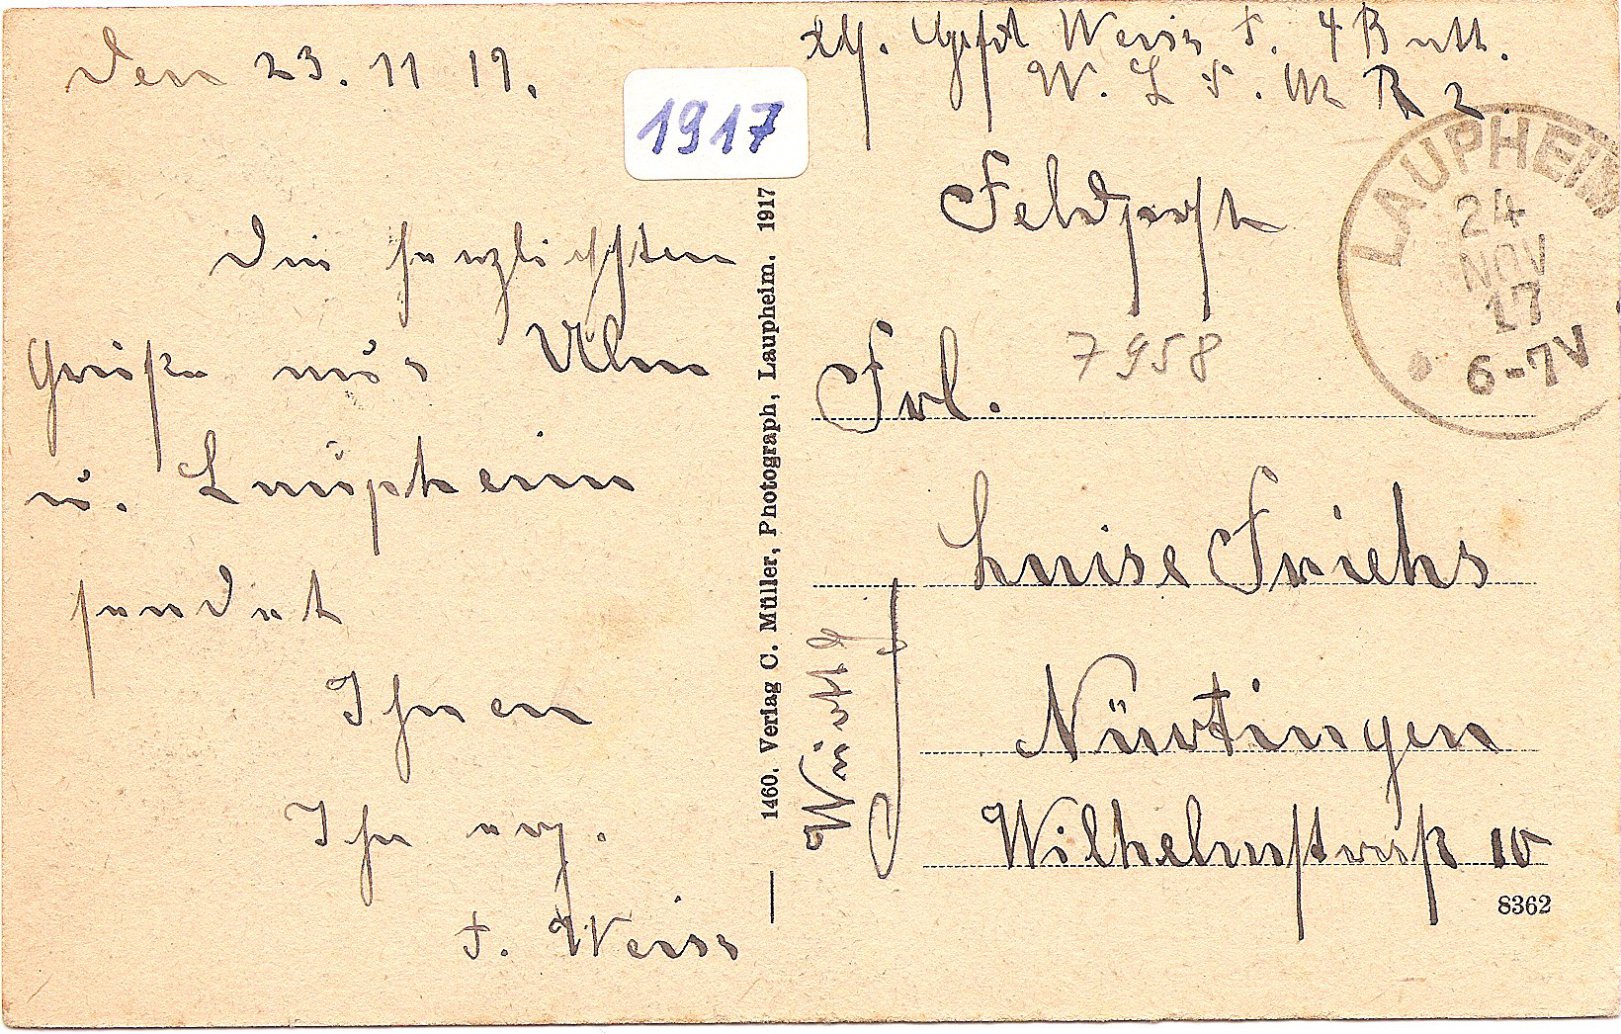 Den 23. 11 17.
1917
Die herzlichsten
Grüße aus Ulm
u. Laupheim
sendet
Ihnen
Ihr erg.
F. Weiss
1460. Verlag C. Müller, Photograph, Laupheim. 1917
Gefr Weiss F. 4 Batt.
W. L F. M R 2.
LAUPHEIM
24
NOV
17
6-7V
Feldpost
7958
Frl.
Luise Friehs
Nürtingen
Wilhelmstraß 10
Württb
8362